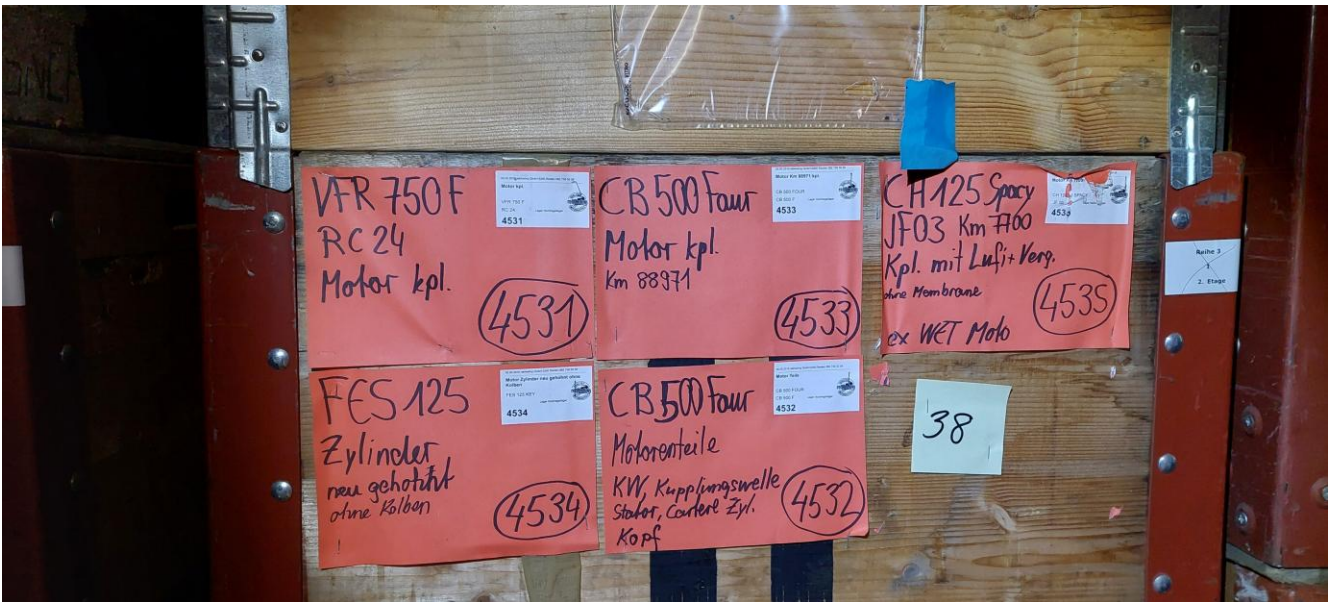 VFR 750 F
RC 24
Motor kpl.
4531
Motor kpl.
VFR 750 F
RC 24
4531
CB 500 Four
Motor kpl.
Km 88971
4533
Motor Km 88971 kpl.
CB 500 FOUR
CB 500 F
4533
CH 125 Spacy
JF03 Km 7700
Kpl. mit Lufi + Verg.
ohne Membrane
4535
ex WET Moto
Reihe 3
1
2. Etage
FES 125
Zylinder
neu gehohnt
ohne Kolben
4534
Motor Zylinder neu gehohnt ohne
Kolben
4534
CB 500 Four
Motorenteile
KW, Kupplungswelle
Stator, Cartere Zyl.
Kopf
4532
Motor Teile
CB 500 FOUR
CB 500 F
4532
38